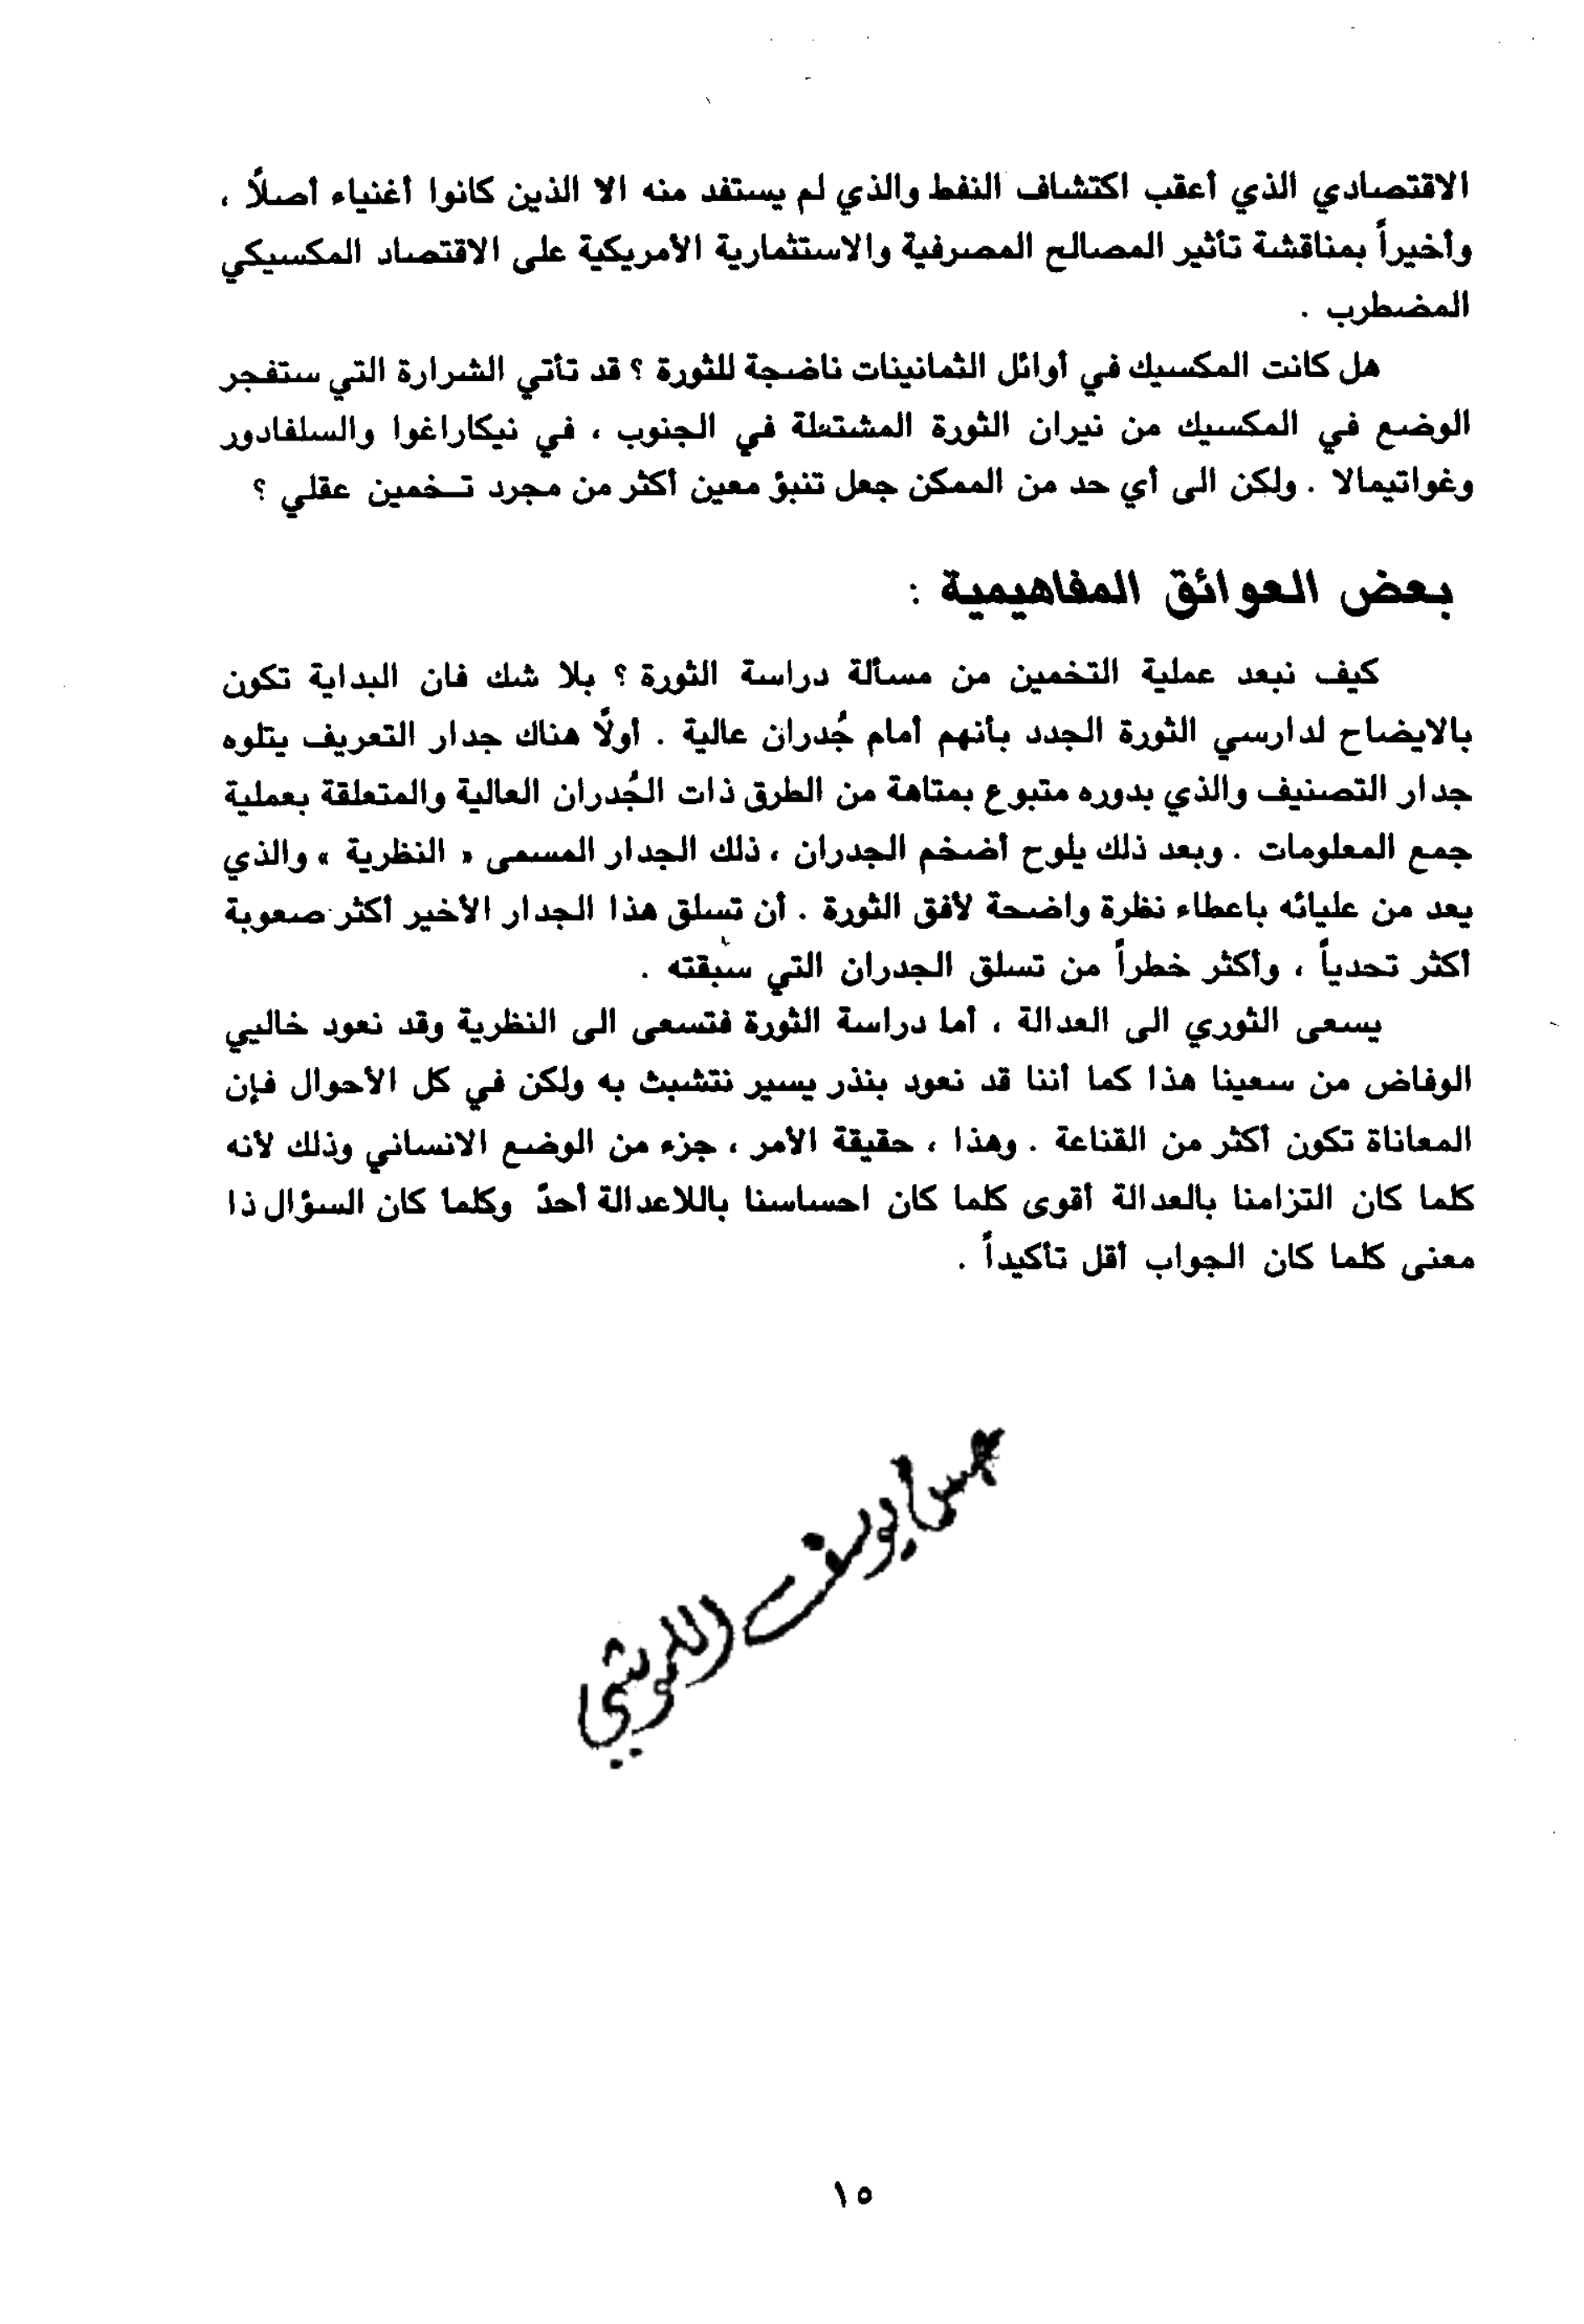 الاقتصادي الذي أعقب اكتشاف النفط والذي لم يستفد منه الا الذين كانوا أغنياء أصلاً ،
وأخيراً بمناقشة تأثير المصالح المصرفية والاستثمارية الأمريكية على الاقتصاد المكسيكي
المضطرب .
هل كانت المكسيك في أوائل الثمانينات ناضجة للثورة ؟ قد تأتي الشرارة التي ستفجر
الوضع في المكسيك من نيران الثورة المشتعلة في الجنوب ، في نيكاراغوا والسلفادور
وغواتيمالا . ولكن الى أي حد من الممكن جعل تنبؤ معين أكثر من مجرد تـخمين عقلي ؟
بعض العوائق المفاهيمية :
كيف نبعد عملية التخمين من مسألة دراسة الثورة ؟ بلا شك فان البداية تكون
بالايضاح لدارسي الثورة الجدد بأنهم أمام جُدران عالية . أولاً هناك جدار التعريف يتلوه
جدار التصنيف والذي بدوره متبوع بمتاهة من الطرق ذات الجُدران العالية والمتعلقة بعملية
جمع المعلومات . وبعد ذلك يلوح أضخم الجدران ، ذلك الجدار المسمى « النظرية » والذي
يعد من عليائه باعطاء نظرة واضحة لأفق الثورة . أن تسلق هذا الجدار الأخير أكثر صعوبة
أكثر تحدياً ، وأكثر خطراً من تسلق الجدران التي سبقته .
يسعى الثوري الى العدالة ، أما دراسة الثورة فتسعى الى النظرية وقد نعود خاليي
الوفاض من سعينا هذا كما أننا قد نعود بنذر يسير نتشبث به ولكن في كل الأحوال فإن
المعاناة تكون أكثر من القناعة . وهذا ، حقيقة الأمر ، جزء من الوضع الانساني وذلك لأنه
كلما كان التزامنا بالعدالة أقوى كلما كان احساسنا باللاعدالة أحدّ وكلما كان السؤال ذا
معنى كلما كان الجواب أقل تأكيداً .
يوسف
١٥